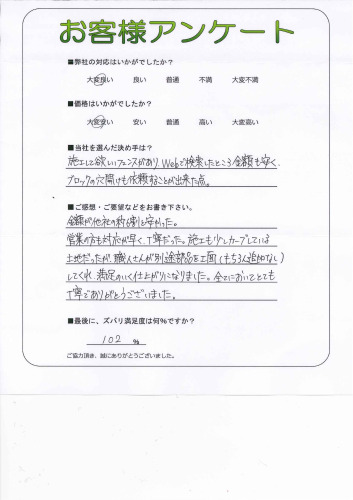 お客様アンケート
■弊社の対応はいかがでしたか？
大変良い 良い 普通 不満 大変不満
■価格はいかがでしたか？
大変安い 安い 普通 高い 大変高い
■当社を選んだ決め手は？
施工して欲しいフェンスがあり、Webで検索したところ金額も安く、
ブロックの穴開けも依頼することが出来た点。
■ご感想・ご要望などをお書き下さい。
金額が他社の約6割と安かった。
営業の方も対応が早く、丁寧だった。施工も少しカーブしている
土地だったが、職人さんが別途部品を工面(もちろん追加なし)
してくれ、満足のいく仕上がりになりました。全てにおいてとても
丁寧でありがとうございました。
■最後に、ズバリ満足度は何%ですか？
102 %
ご協力頂き、誠にありがとうございました。